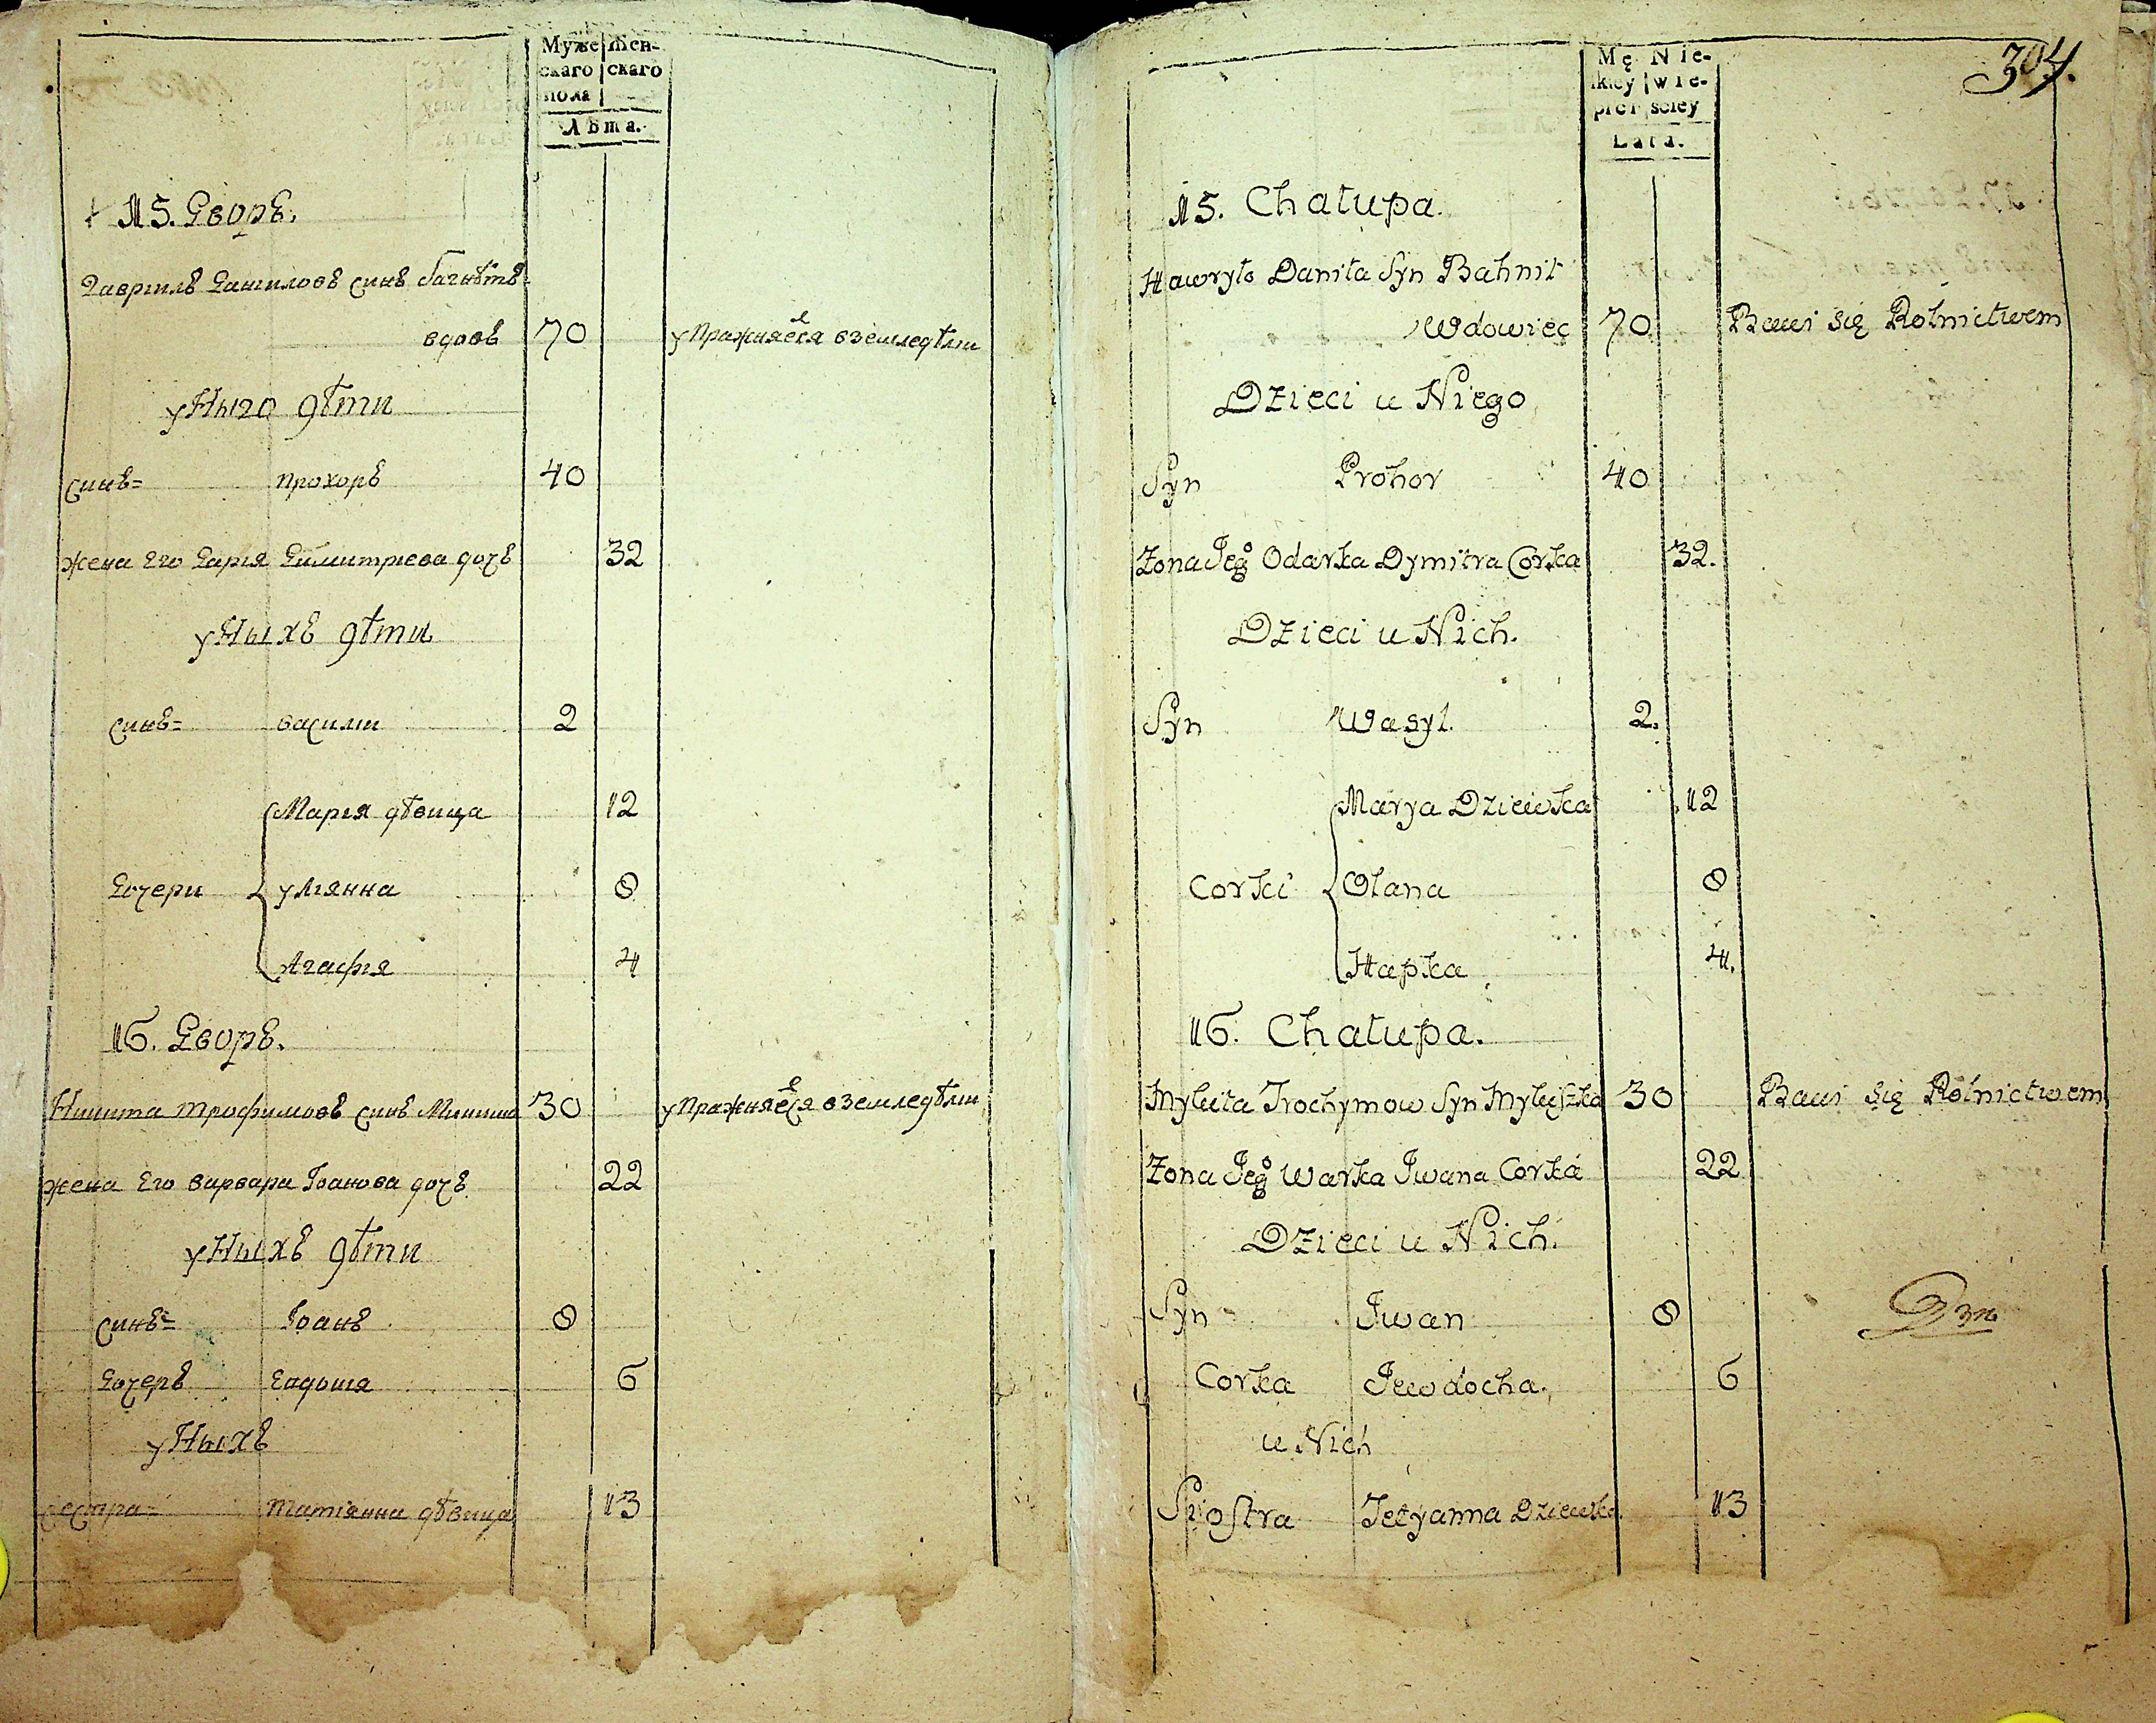 Муже- Жен-
скаго скаго
пола
Лѣта.
15. Дворъ.
Гаврилъ Даниловъ синъ Багнѣтъ
вдовъ 70 упражняется в земледѣлии
у Ныго дѣти
синъ= прохоръ 40
жена его Дария Димитриева дочъ 32
у Ныхъ дѣти
синъ= василии 2
Мария дѣвица 12
Дочери улиянна 8
Агафия 4
16. Дворъ.
трофимовъ синъ 30 упражняется в земледѣлии
жена его варвара Іоанова дочъ 22
у Ныхъ дѣти
синъ= Іоанъ 8
Дочеръ 6
у Ныхъ
сестра= татиянна дѣвица 13
304.
Mę Nie-
skiey wie-
płci sciey
Lata.
15. Chałupa.
Hawryło Daniła Syn Bahnit
Wdowiec 70 Bawi się Rolnictwem
Dzieci u Niego
Syn Prohor 40
Żona Jego Odarka Dymitra Corka 32.
Dzieci u Nich.
Syn Wasyl. 2.
Marya Dziewka 12
Corki Olana 8
Hapka 4.
16. Chałupa.
Mykita Trochymow Syn 30 Bawi się Rolnictwem
Żona Jego Warka Iwana Corka 22
Dzieci u Nich.
Syn Iwan 8
Corka Jewdocha. 6
u Nich
Siostra Tetyanna Dziewka 13